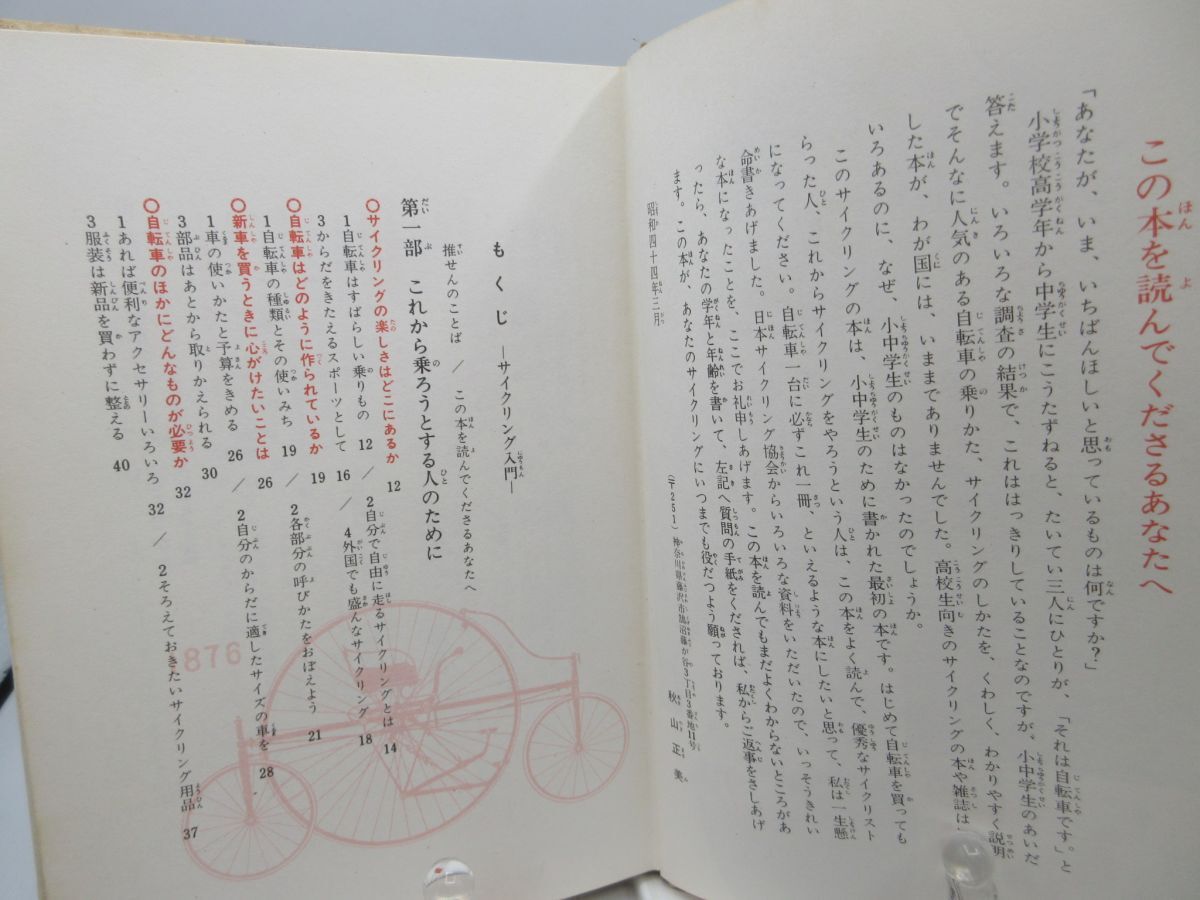 この本を読んでくださるあなたへ
「あなたが、いま、いちばんほしいと思っているものは何ですか?」
小学校高学年から中学生にこうたずねると、たいてい三人にひとりが、「それは自転車です。」と
答えます。いろいろな調査の結果で、これははっきりしていることなのですが、小中学生のあいだ
でそんなに人気のある自転車の乗りかた、サイクリングのしかたを、くわしく、わかりやすく説明
した本が、わが国には、いままでありませんでした。高校生向きのサイクリングの本や雑誌は
いろあるのに、なぜ、小中学生のものはなかったのでしょうか。
このサイクリングの本は、小中学生のために書かれた最初の本です。はじめて自転車を買っても
らった人、これからサイクリングをやろうという人は、この本をよく読んで、優秀なサイクリスト
になってください。自転車一台に必ずこれ一冊、といえるような本にしたいと思って、私は一生懸
命書きあげました。日本サイクリング協会からいろいろな資料をいただいたので、いっそうきれい
な本になったことを、ここでお礼申しあげます。この本を読んでもまだよくわからないところがあ
ったら、あなたの学年と年齢を書いて、左記へ質問の手紙をくだされば、私からご返事をさしあげ
ます。この本が、あなたのサイクリングにいつまでも役だつよう願っております。
昭和四十四年三月
(〒251) 神奈川県藤沢市鵠沼藤が谷3丁目3番地11号
秋山正美
もくじ ―サイクリング入門―
推せんのことば / この本を読んでくださるあなたへ
第一部 これから乗ろうとする人のために
○サイクリングの楽しさはどこにあるか 12
1自転車はすばらしい乗りもの 12 / 2自分で自由に走るサイクリングとは 14
3からだをきたえるスポーツとして 16 / 4外国でも盛んなサイクリング 18
○自転車はどのように作られているか 19
1自転車の種類とその使いみち 19 / 2各部分の呼びかたをおぼえよう 21
○新車を買うときに心がけたいことは 26
1車の使いかたと予算をきめる 26 / 2自分のからだに適したサイズの車を 28
3部品はあとから取りかえられる 30
○自転車のほかにどんなものが必要か 32
1あれば便利なアクセサリーいろいろ 32 / 2そろえておきたいサイクリング用品 37
3服装は新品を買わずに整える 40
876